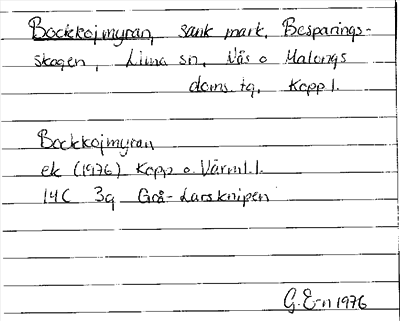 Bockkojmyran, sank mark, Besparings-
skogen, Lima sn, Nås o Malungs
doms. tg, Kopp l.
Bockkojmyran
ek (1976) Kopp o. Värml. l.
14C 3g Grå-Larsknipen
G. E-n 1976